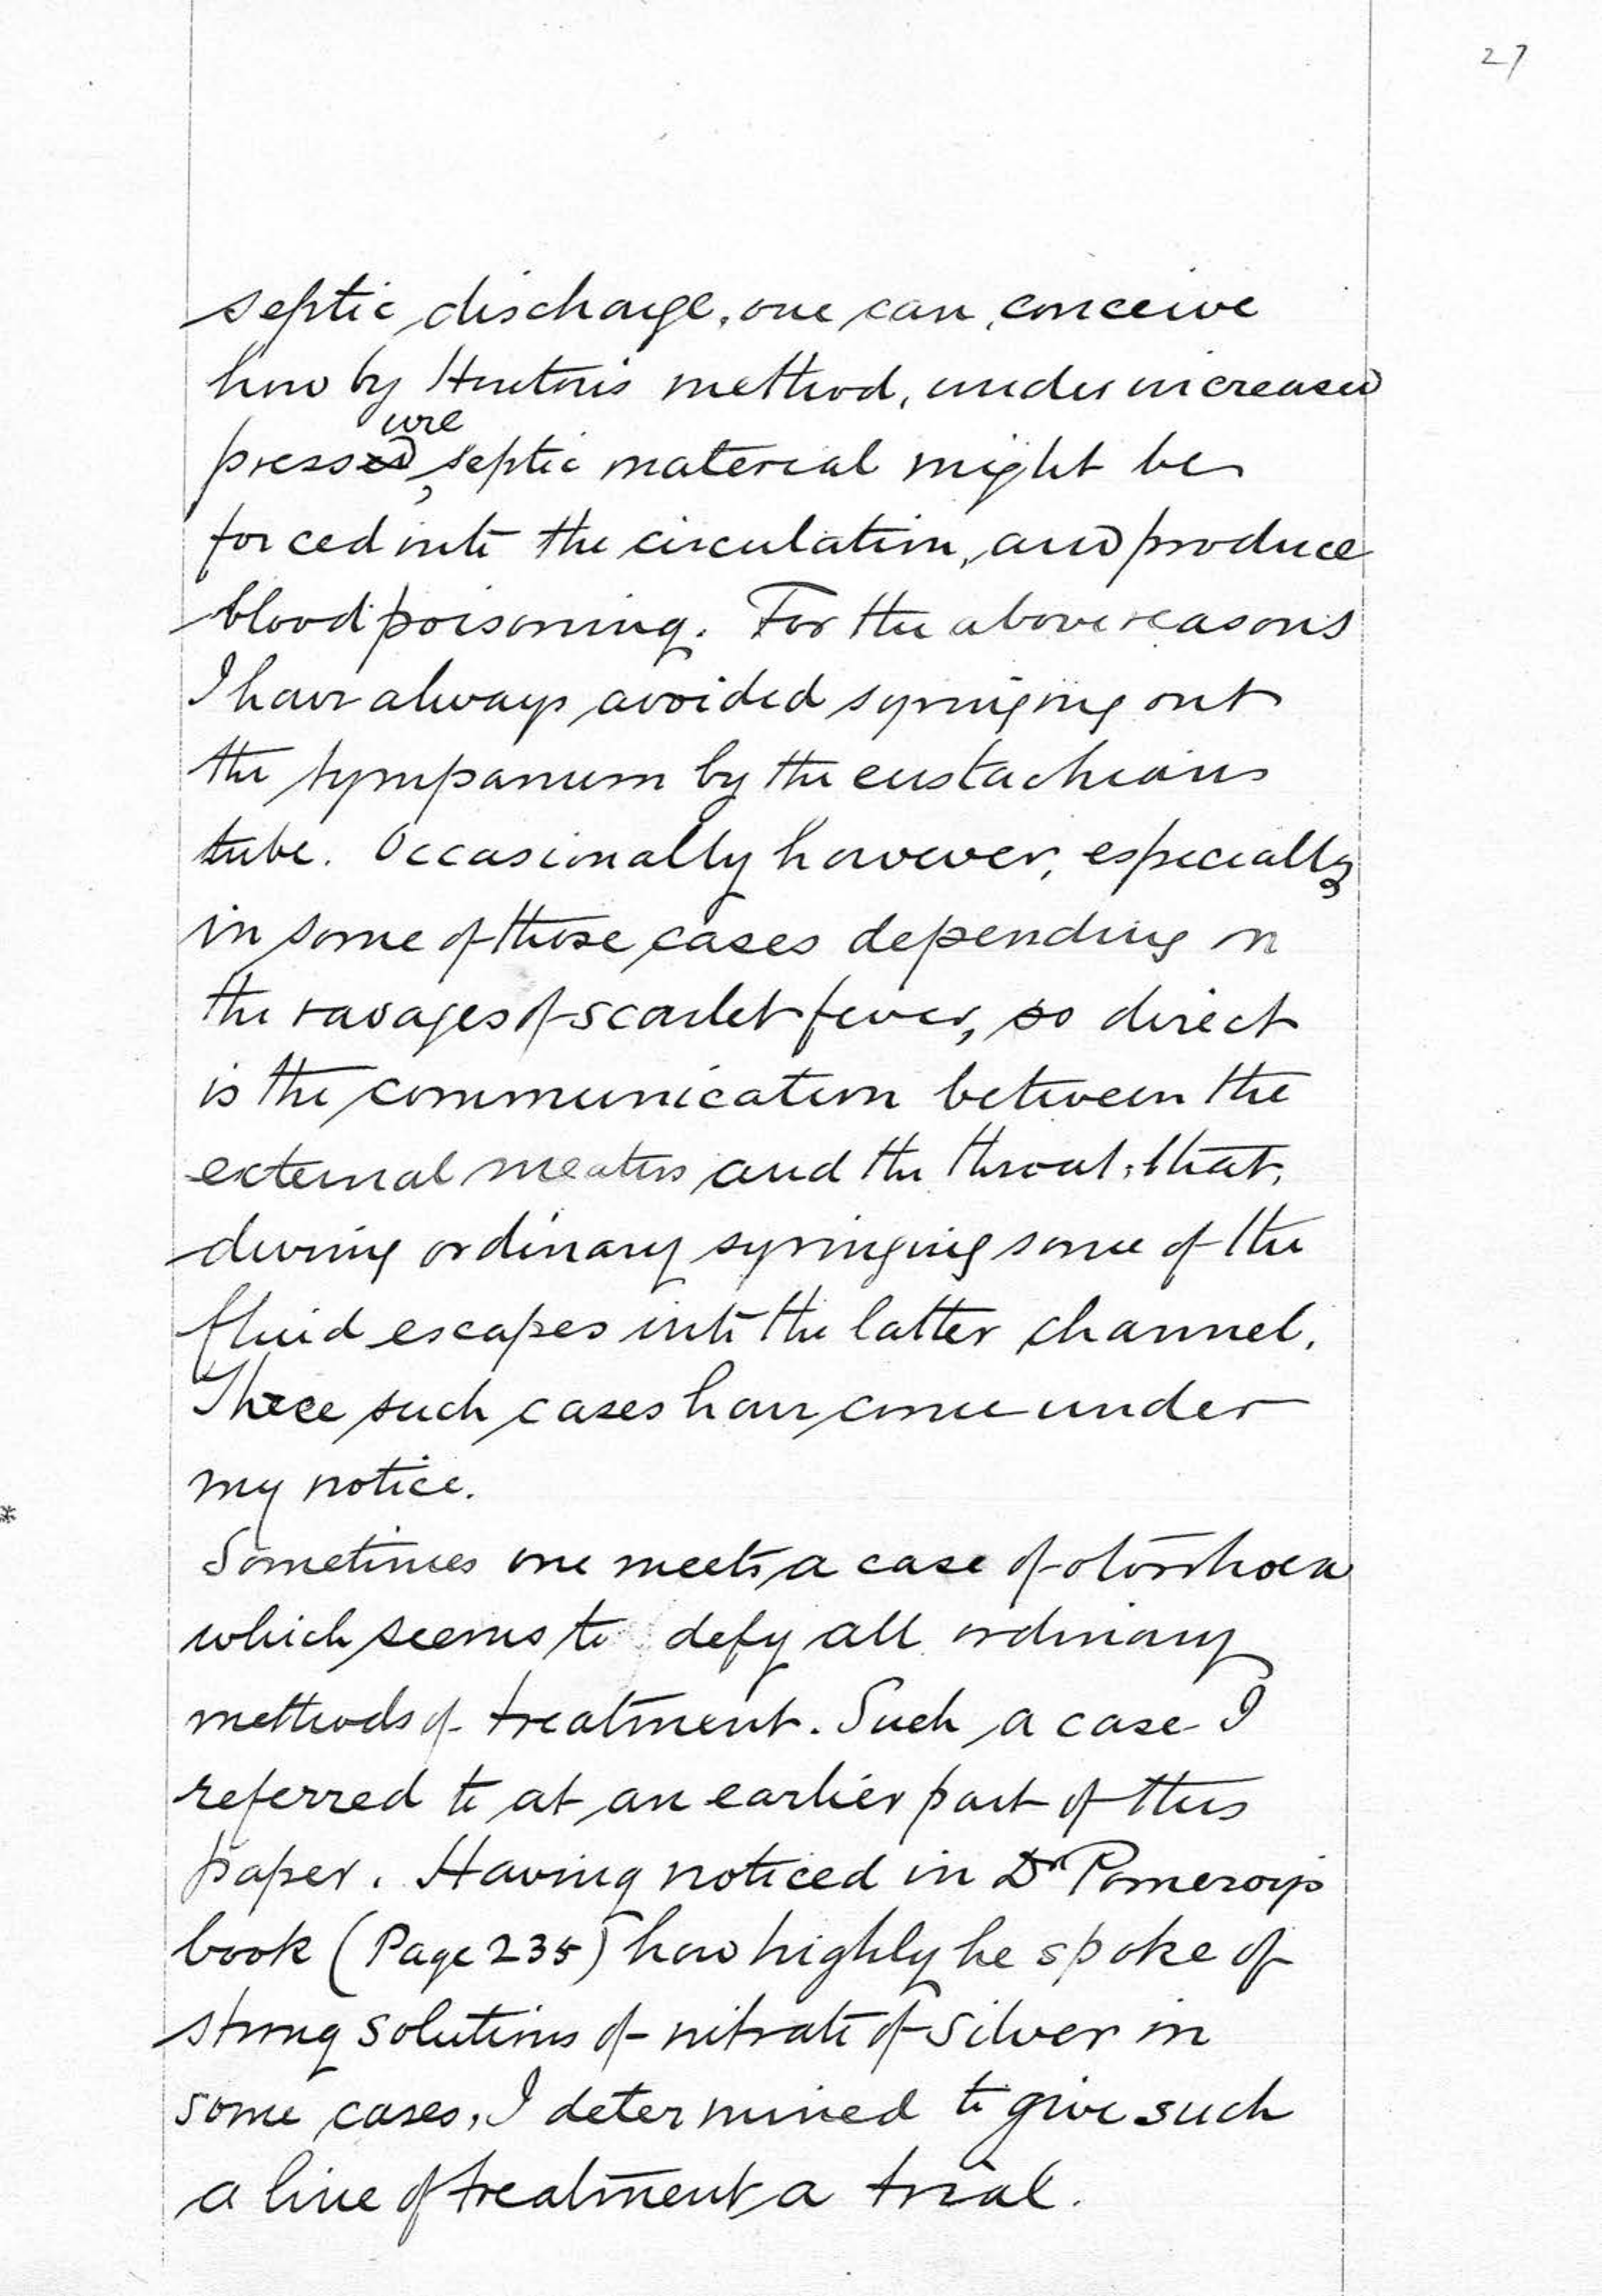 27
septic discharge, one can conceive
how by Hinton's method, under increased
pressure, septic material might be
forced into the circulation, and produce
blood poisoning. For the above reasons
I have always avoided syringing out
the tympanum by the eustachian
tube. Occasionally however, especially
in some of those cases depending on
the ravages of scarlet fever, so direct
is the communication between the
external meatus and the throat, that,
during ordinary syringing some of the
fluid escapes into the latter channel.
Three such cases have come under
my notice.
*
Sometimes one meets a case of otorrhoea
which seems to defy all ordinary
methods of treatment. Such a case I
referred to at an earlier part of this
paper. Having noticed in Dr Pomeroy's
book (Page 235) how highly he spoke of
strong solutions of nitrate of silver in
some cases, I determined to give such
a line of treatment a trial.